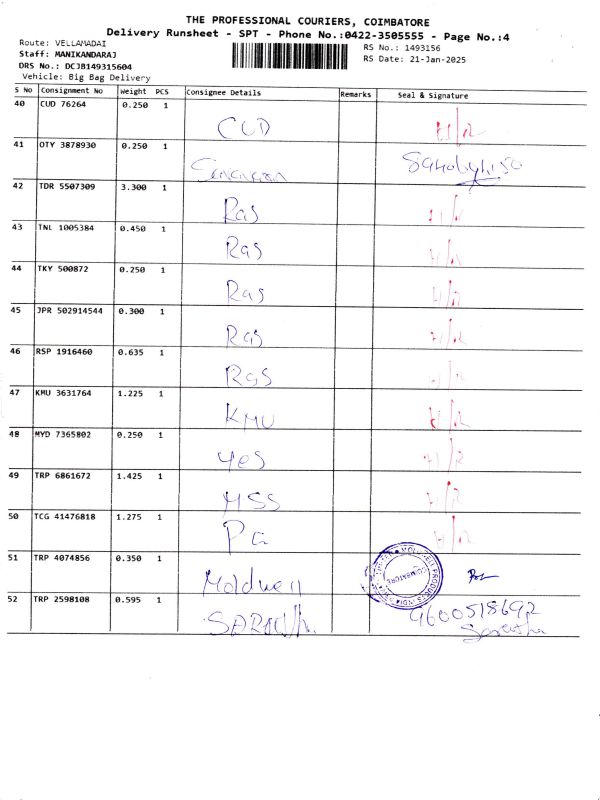 THE PROFESSIONAL COURIERS, COIMBATORE
Delivery Runsheet - SPT - Phone No.:0422-3505555 - Page No.:4
Route: VELLAMADAI
RS No.: 1493156
Staff: MANIKANDARAJ
RS Date: 21-Jan-2025
DRS No.: DCJB149315604
Vehicle: Big Bag Delivery
S No Consignment No Weight PCS Consignee Details Remarks Seal & Signature
40 CUD 76264 0.250 1
CUD
41 OTY 3878930 0.250 1
42 TDR 5507309 3.300 1
Ras
43 TNL 1005384 0.450 1
Ras
44 TKY 500872 0.250 1
Ras
45 JPR 502914544 0.300 1
Ras
46 RSP 1916460 0.635 1
Ras
47 KMU 3631764 1.225 1
KMU
48 MYD 7365802 0.250 1
Yes
49 TRP 6861672 1.425 1
MSS
50 TCG 41476818 1.275 1
51 TRP 4074856 0.350 1
Moldwell
COIMBATORE
52 TRP 2598108 0.595 1
9600518692